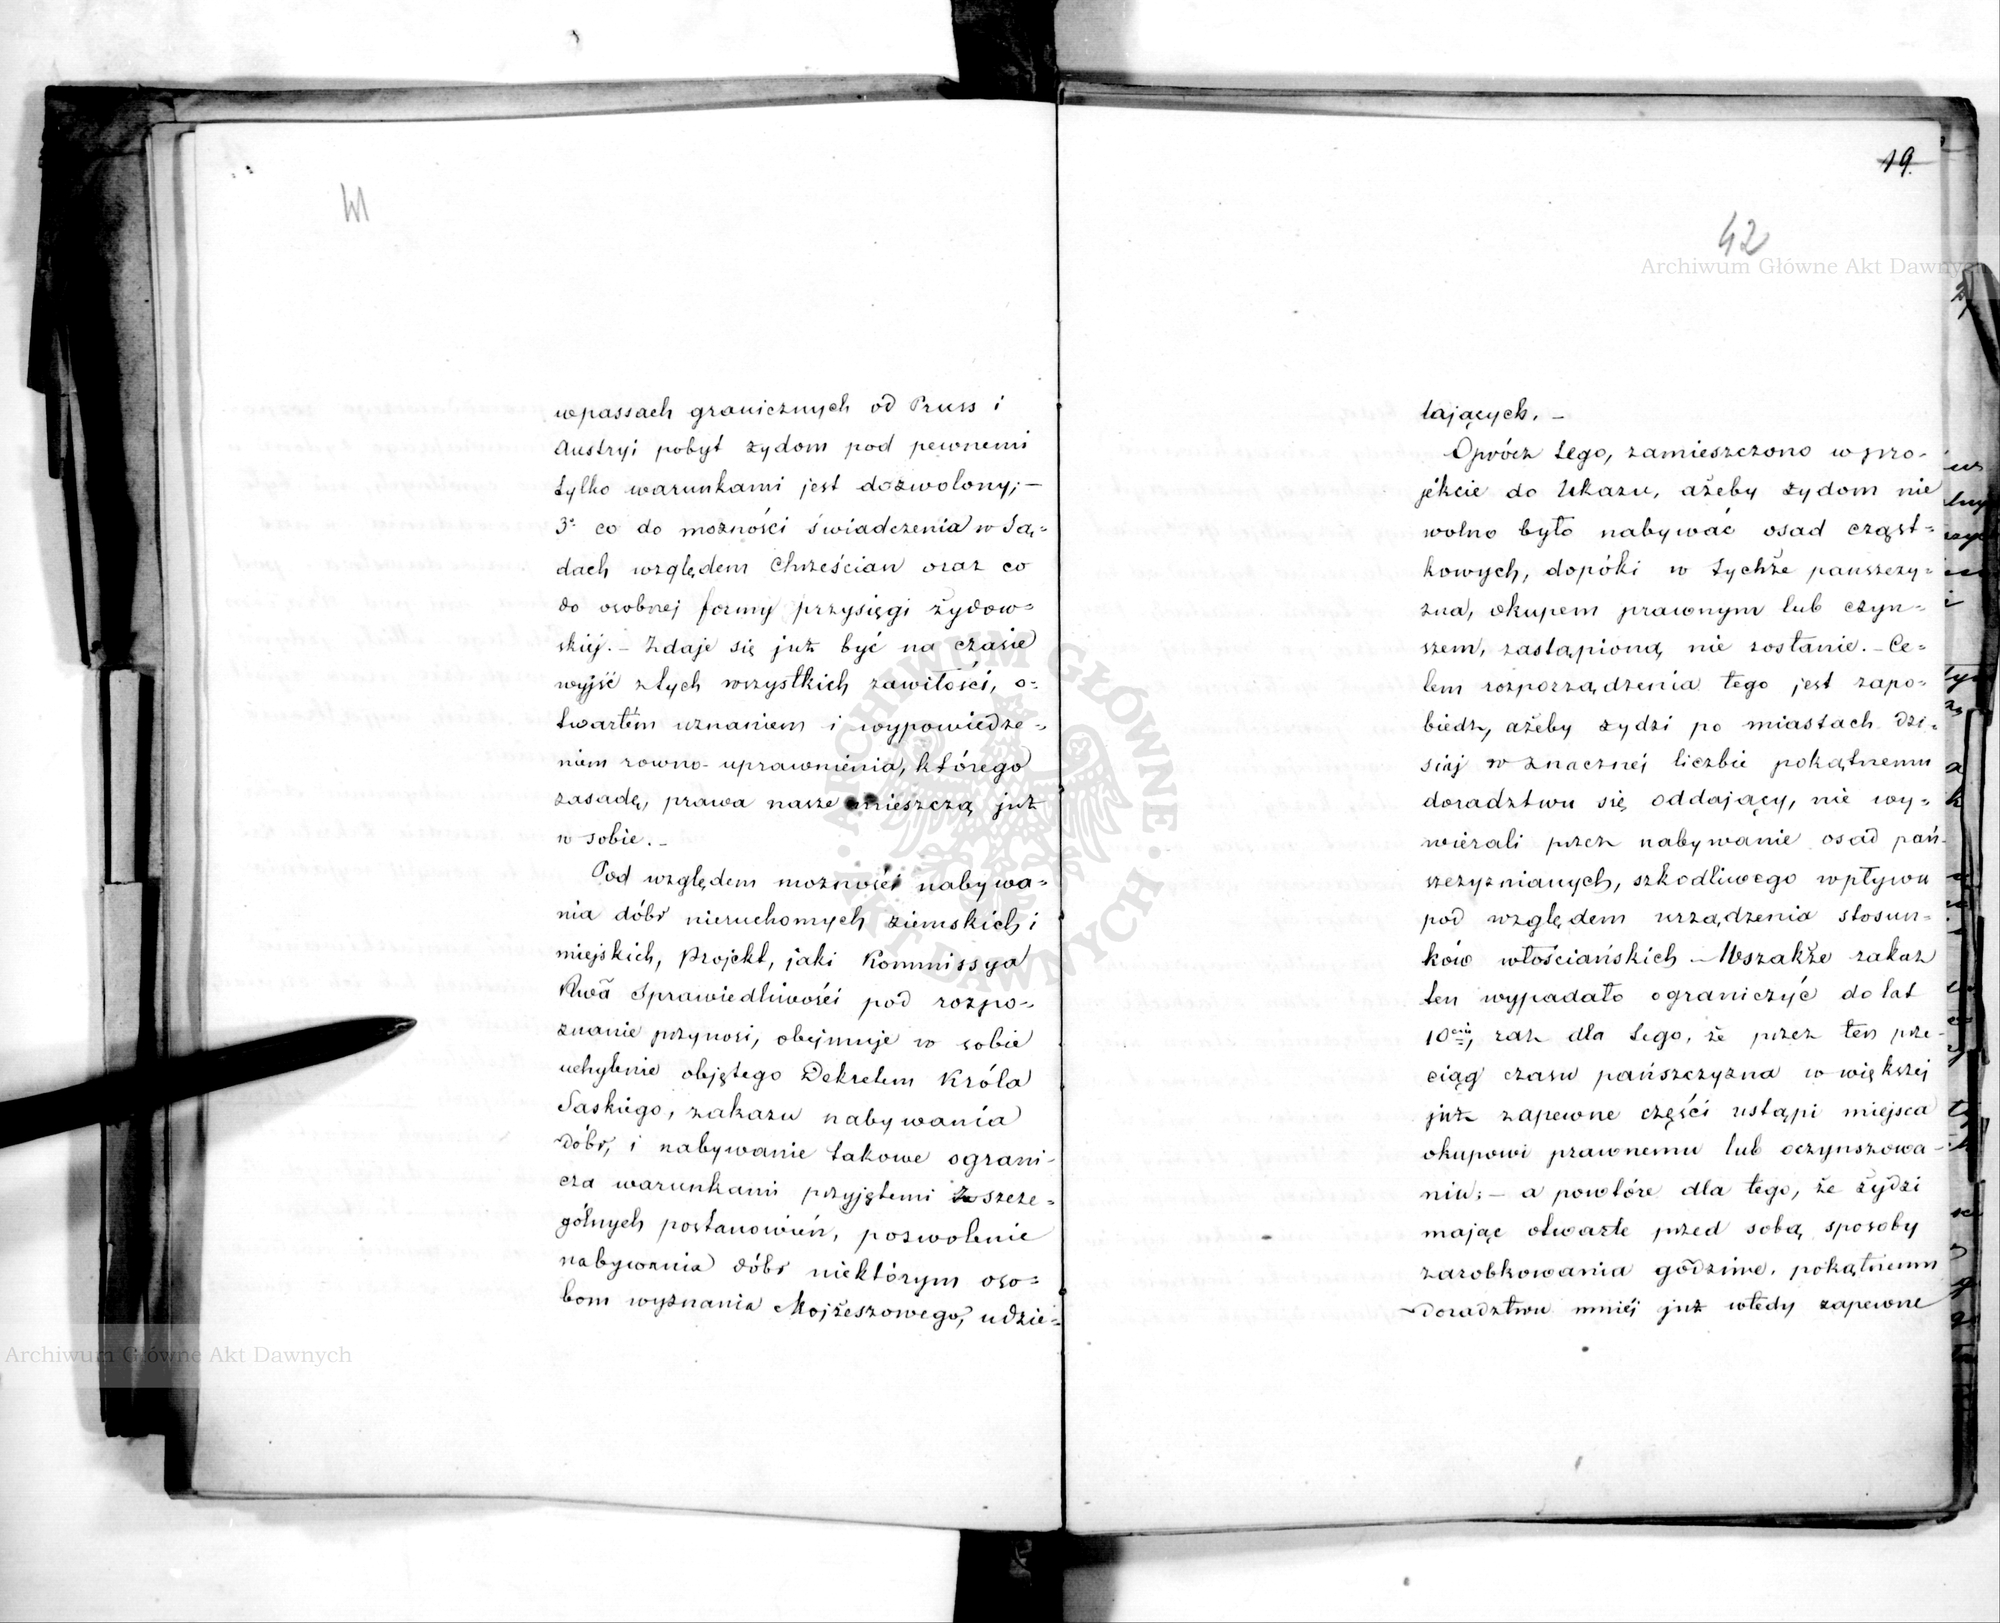 41
wpassach granicznych od Pruss i
Austryi pobyt żydom pod pewnemi
tylko warunkami jest dozwolony; —
3º co do możności świadczenia w Są=
dach względem Chrześcian oraz co
do osobnej formy przysięgi żydow=
skiéj. — Zdaje się już być na czasie
wyjść z tych wszystkich zawiłości, o=
twartém uznaniem i wypowiedze=
niem rowno-uprawnienia, którego
zasadę, prawa nasze mieszczą już
w sobie. —
Pod względem możności nabywa=
nia dóbr nieruchomych ziemskich i
miejskich, Projekt, jaki Kommissya
Rwa Sprawiedliwości pod rozpo=
znanie przynosi, obejmuje w sobie
uchylenie objętego Dekretem Króla
Saskiego, zakazu nabywania
dóbr, i nabywanie takowe ograni=
cza warunkami przyjętemi z szcze=
gólnych postanowień, pozwolenie
nabywania dóbr niektórym oso=
bom wyznania Mojżeszowego, udzie=
19.
42
lających. —
Oprócz tego, zamieszczono w pro=
jekcie do Ukazu, ażeby żydom nie
wolno było nabywać osad cząst=
kowych, dopóki w tychże pańszczy=
zna, okupem prawnym lub czyn=
szem, zastąpioną nie zostanie. — Ce=
lem rozporządzenia tego jest zapo=
biedz, ażeby żydzi po miastach dzi=
siaj w znacznej liczbie pokątnemu
doradztwu się oddający, nie wy=
wierali przez nabywanie osad pań=
szczyznianych, szkodliwego wpływu
pod względem urządzenia stosun=
ków włościańskich — Wszakże zakaz
ten wypadało ograniczyć do lat
10ciu, raz dla tego, że przez ten prze=
ciąg czasu pańszczyzna w większej
już zapewne części ustąpi miejsca
okupowi prawnemu lub oczynszowa=
niu; — a powtóre dla tego, że żydzi
mając otwarte przed sobą sposoby
zarobkowania godziwe, pokątnemu
doradztwu mniéj już wtedy zapewne
Archiwum Główne Akt Dawnych
Archiwum Główne Akt Dawnych
ARCHIWUM GŁÓWNE AKT DAWNYCH